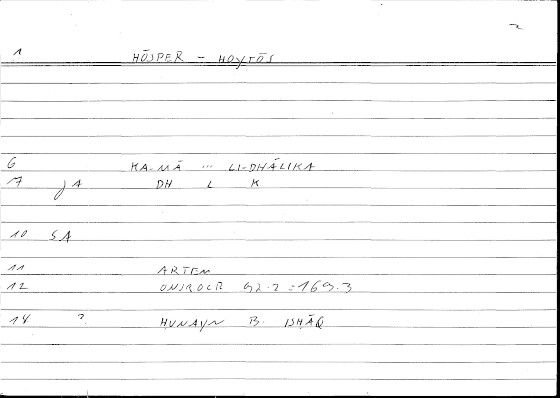 1 HŌSPER – HOYTŌS
6 KA-MĀ ... LI-DHĀLIKA
7 JA DH L K
10 SA
11 ARTEM
12 ONIROCR 92.2 = 169.3
14 ? HUNAYN B. ISHĀQ